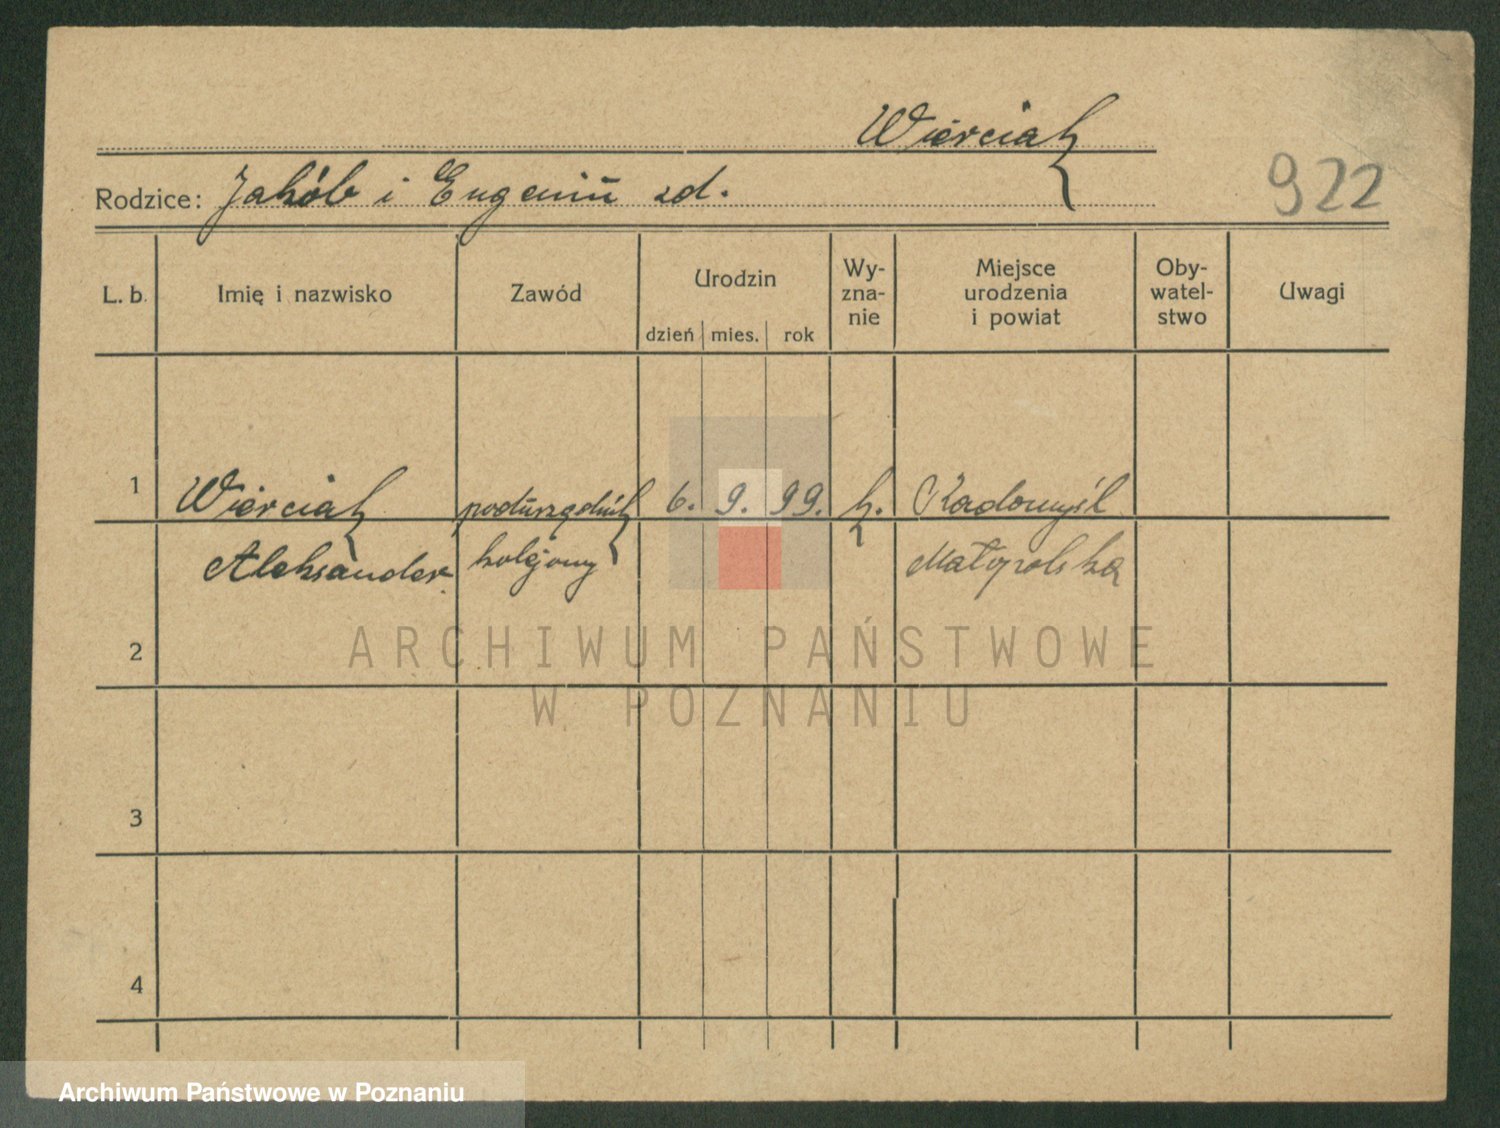 Wierciak
Rodzice: Jakób i Eugeniu zd.
922
L. b. Imię i nazwisko Zawód Urodzin Wy-zna-nie Miejsce urodzenia i powiat Oby-watel-stwo Uwagi
dzień mies. rok
1 Wierciak podurzędnik 6. 9. 99. k. Radomyśl
Aleksander kolejowy Małopolska
2
3
4
ARCHIWUM PAŃSTWOWE
W POZNANIU
Archiwum Państwowe w Poznaniu